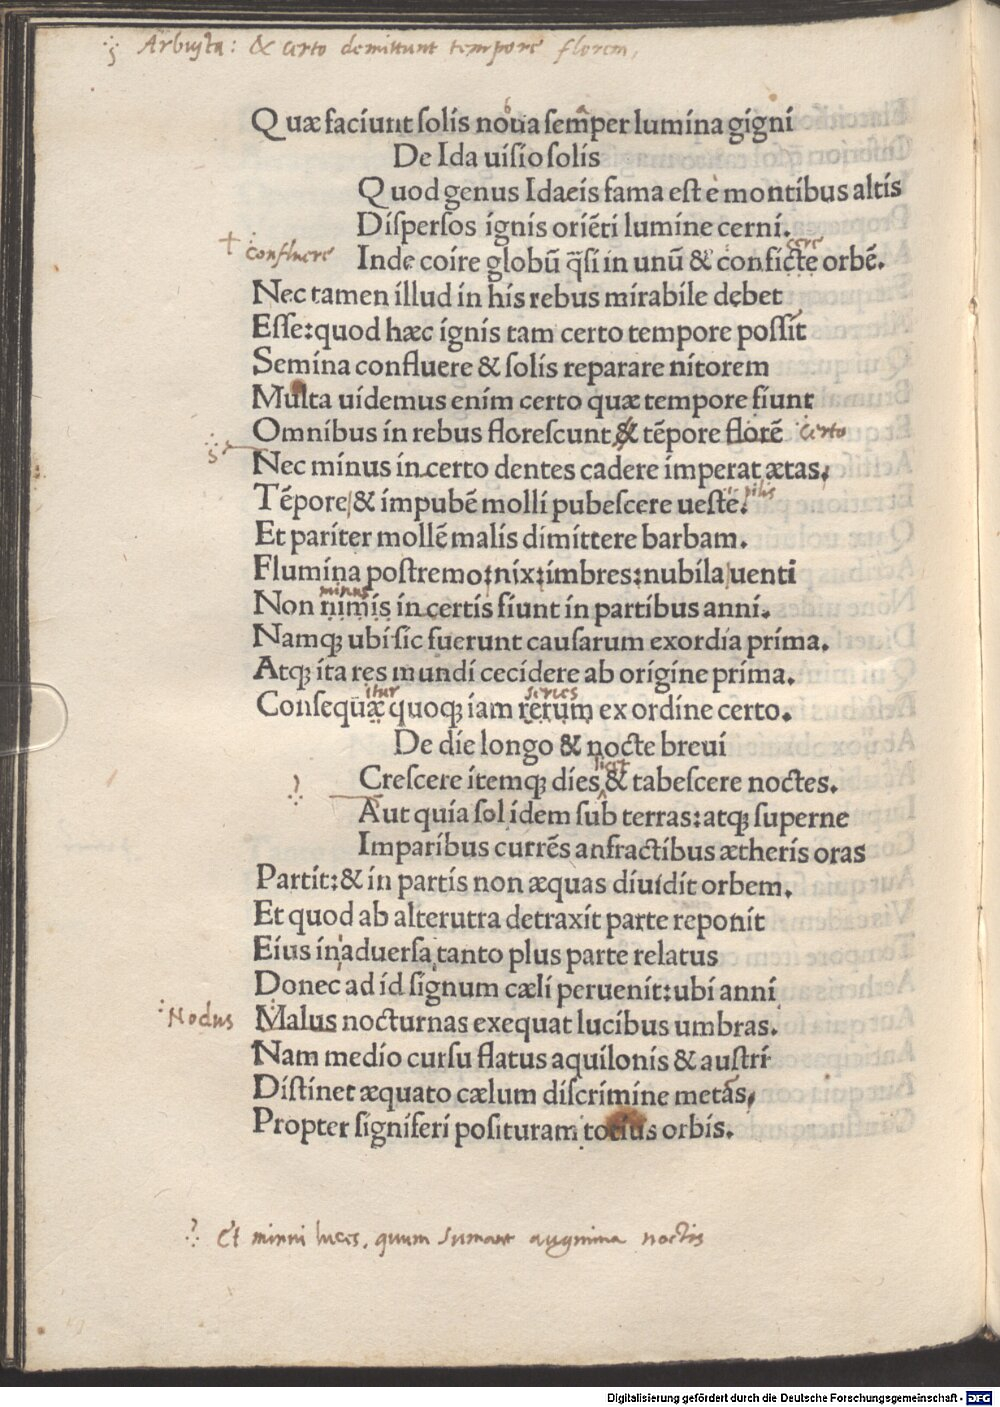 Arbusta: & certo demittunt tempore florem,
Quæ faciunt solis noua semper lumina gigni
De Ida uisio solis
Quod genus Idaeis fama est e montibus altis
Dispersos ignis oriēti lumine cerni.
confluere Inde coire globū q̄si in unū & conficte orbē. cere
Nec tamen illud in his rebus mirabile debet
Esse: quod hæc ignis tam certo tempore possit
Semina confluere & solis reparare nitorem
Multa uidemus enim certo quæ tempore fiunt
Omnibus in rebus florescunt & tēpore florē certo
Nec minus in certo dentes cadere imperat ætas.
Tēpore & impubē molli pubescere ueste. pilis
Et pariter mollē malis dimittere barbam.
Flumina postremo: nix: imbres: nubila uenti
minus
Non nimis in certis fiunt in partibus anni.
Namq; ubi sic fuerunt causarum exordia prima.
Atq; ita res mundi cecidere ab origine prima.
itur series
Consequæ quoq; iam rerum ex ordine certo.
De die longo & nocte breui
licet
Crescere itemq; dies & tabescere noctes.
Aut quia sol idem sub terras: atq; superne
Imparibus currēs anfractibus ætheris oras
Partit: & in partis non æquas diuidit orbem.
Et quod ab alterutra detraxit parte reponit
Eius in aduersa tanto plus parte relatus
Donec ad id signum cæli peruenit: ubi anni
Nodus Malus nocturnas exequat lucibus umbras.
Nam medio cursu flatus aquilonis & austri
Distinet æquato cælum discrimine metas,
Propter signiferi posituram totius orbis.
Et minui luces, quum sumant augmina noctis
Digitalisierung gefördert durch die Deutsche Forschungsgemeinschaft - DFG